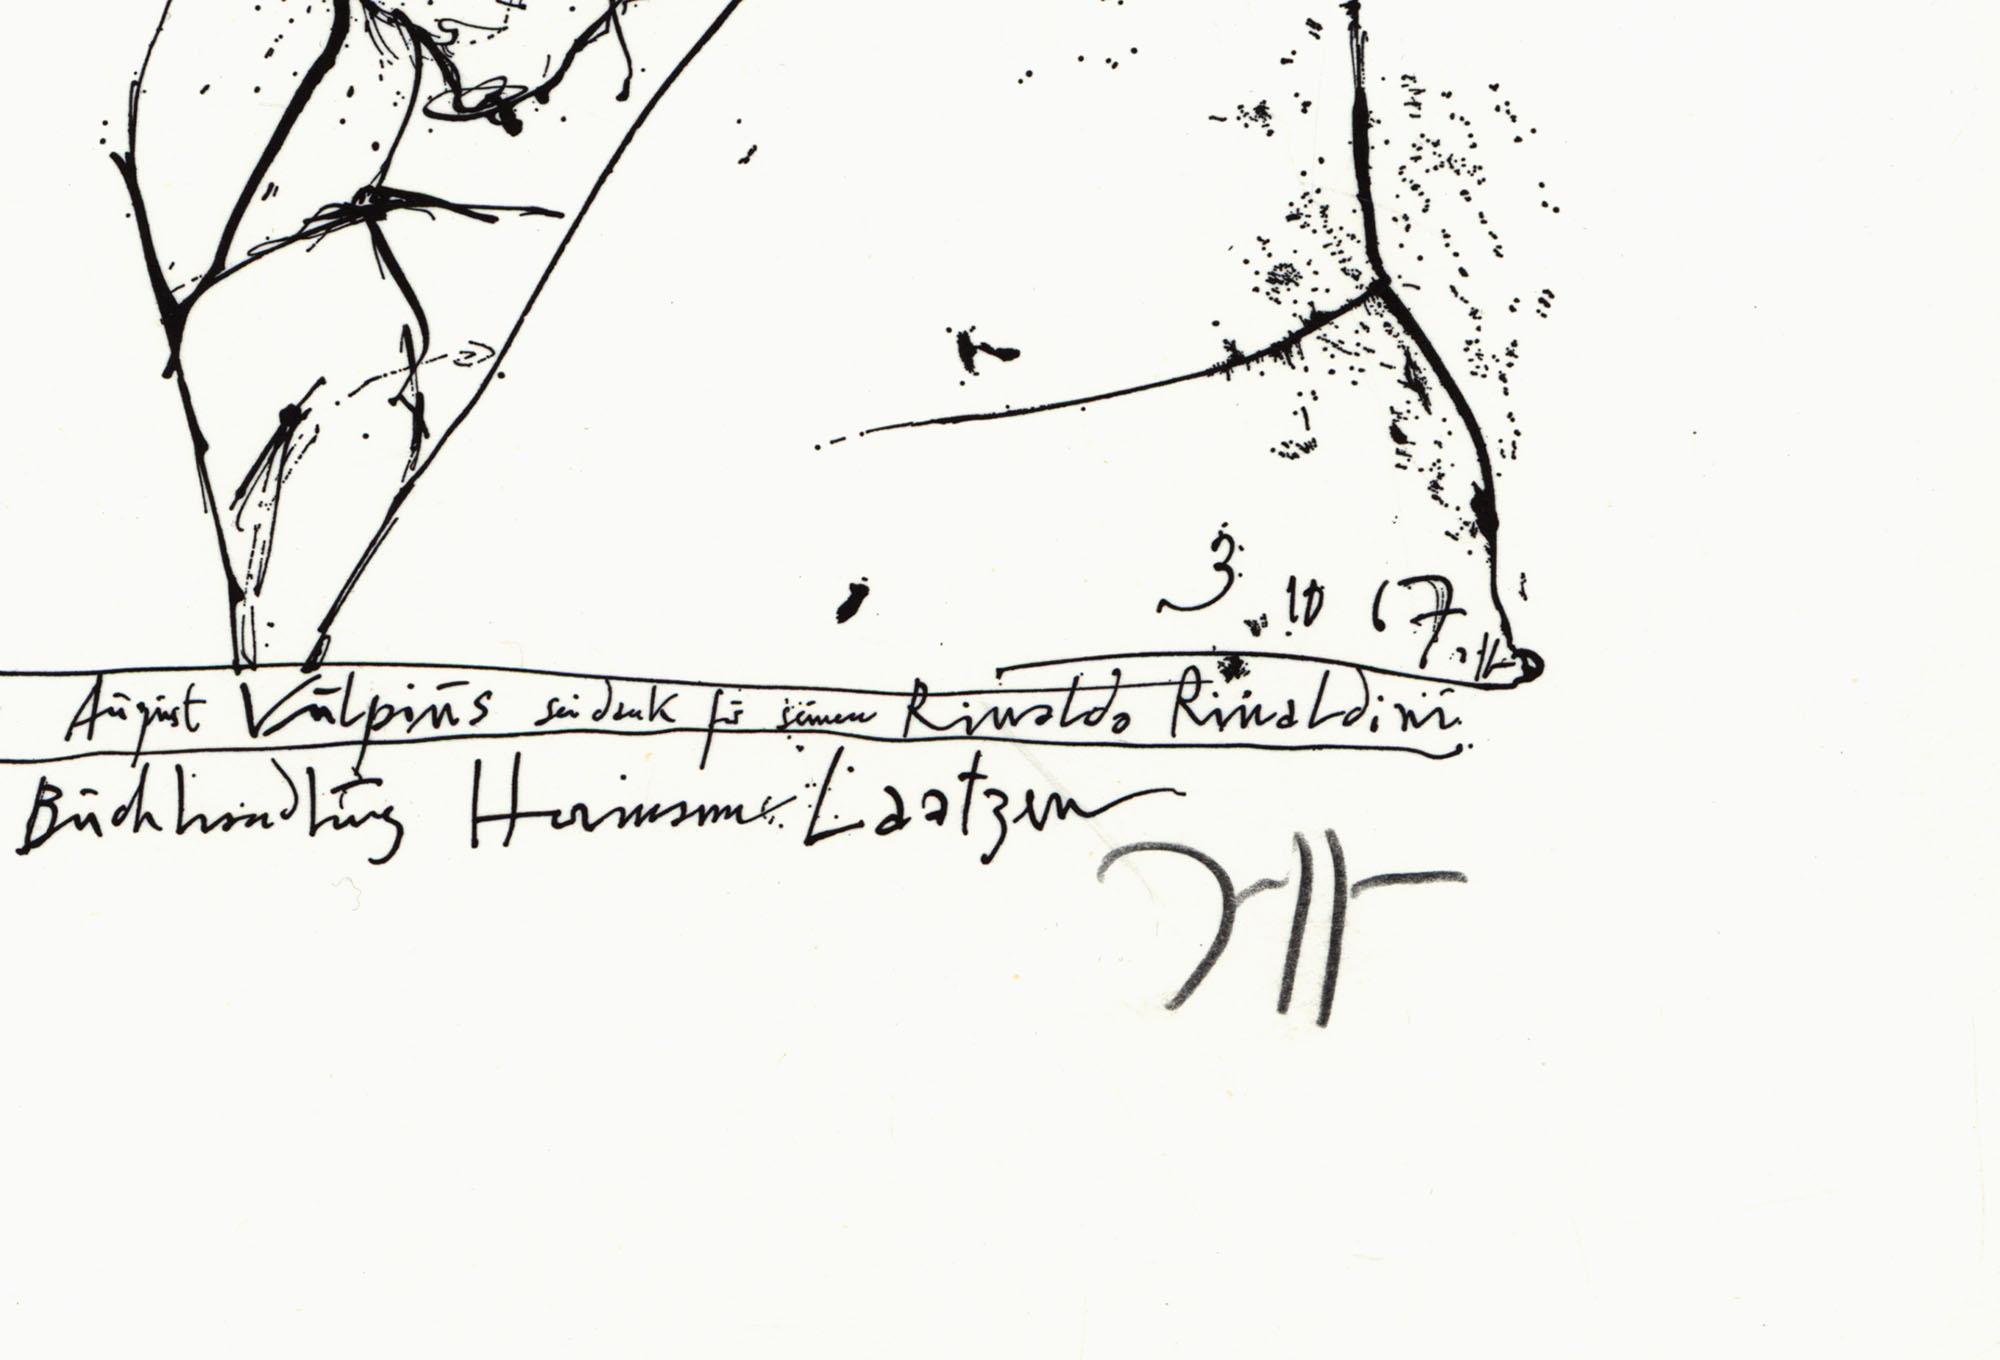 3. 10 67
August Vulpius sei dank für seinen Rinaldo Rinaldini
Buchhandlung Hermann Laatzen